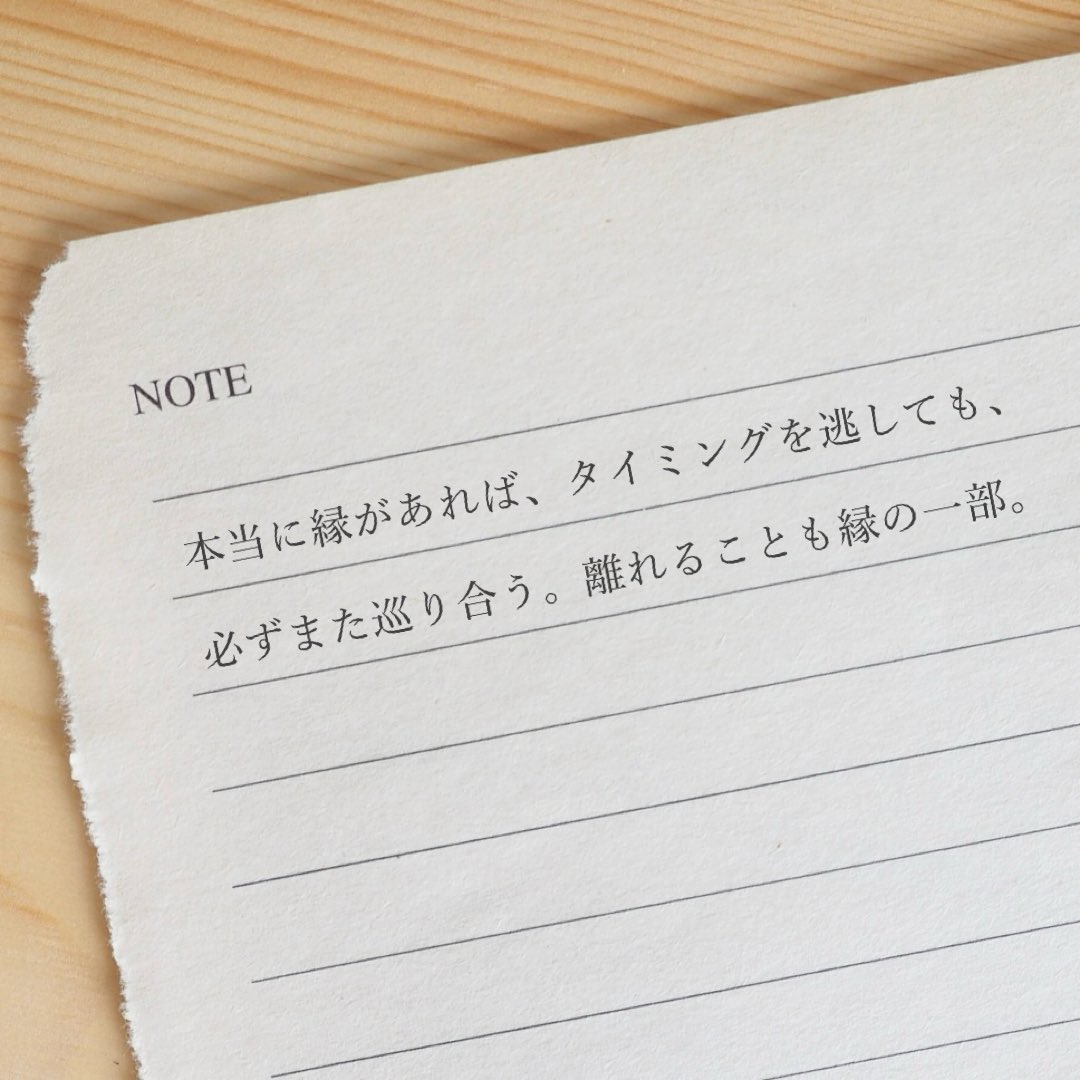 NOTE
本当に縁があれば、タイミングを逃しても、
必ずまた巡り合う。離れることも縁の一部。